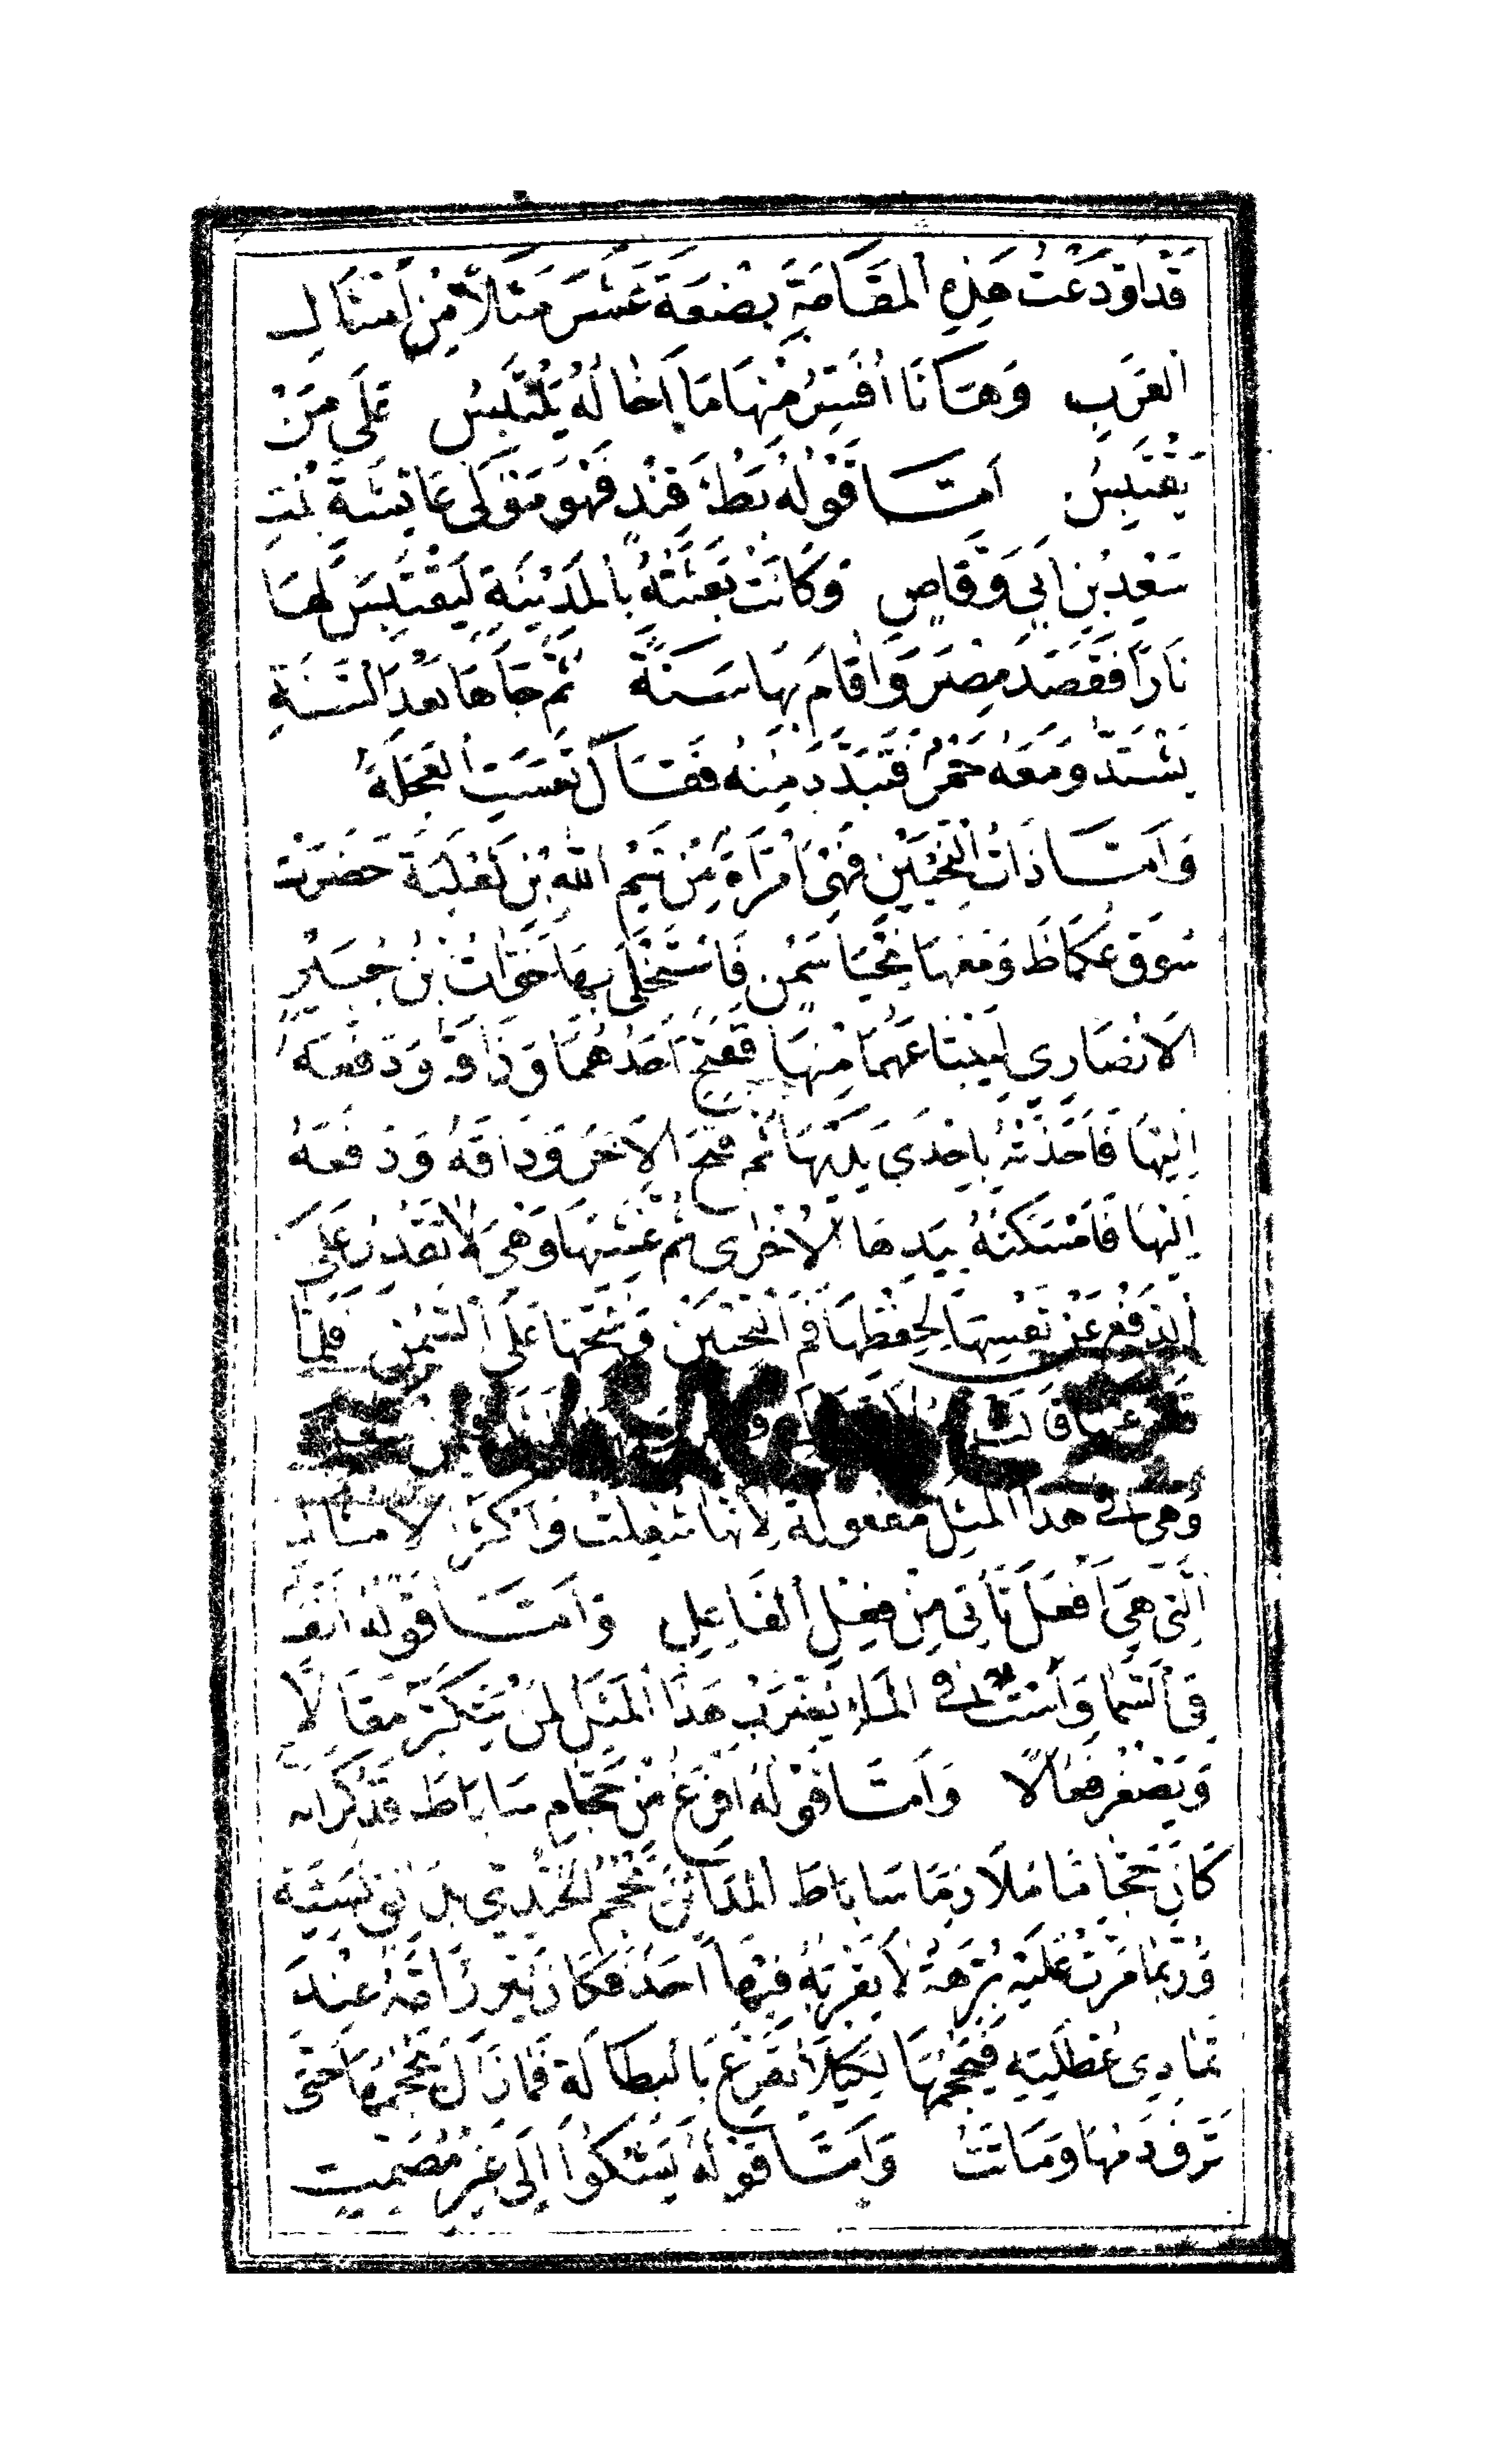 قَدْ اَوْدَعْتُ هَذِهِ الْمَقَامَةَ بِضْعَةَ عَشَرَ مَثَلًا مِنْ اَمْثَالِ
الْعَرَبِ وَهَا اَنَا اُفَسِّرُ مِنْهَا مَا اَخَالُهُ يَلْتَبِسُ عَلَى مَنْ
يَقْتَبِسُ اَمَّا قَوْلُهُ بُطْءَ فِنْدٍ فَهُوَ مَوْلَى عَائِشَةَ بِنْتِ
سَعْدِ بْنِ اَبِي وَقَّاصٍ وَكَانَتْ بَعَثَتْهُ بِالْمَدِينَةِ لِيَقْتَبِسَ لَهَا
نَارًا فَقَصَدَ مِصْرَ وَاَقَامَ بِهَا سَنَةً ثُمَّ جَاهَا بَعْدَ السَّنَةِ
يَشْتَدُّ وَمَعَهُ جَمْرٌ فَتَبَدَّدَ مِنْهُ فَقَالَ تَعِسَتِ الْعَجَلَةُ
وَاَمَّا ذَاتُ النِّحْيَيْنِ فَهِيَ امْرَاَةٌ مِنْ تَيْمِ اللّٰهِ بْنِ ثَعْلَبَةَ حَضَرَتْ
سُوقَ عُكَاظَ وَمَعَهَا نِحْيَا سَمْنٍ فَاسْتَخْلَى بِهَا خَوَّاتُ بْنُ جُبَيْرٍ
الْاَنْصَارِي لِيَبْتَاعَهُمَا مِنْهَا فَفَتَحَ اَحَدَهُمَا وَذَاقَهُ وَدَفَعَهُ
اِلَيْهَا فَاَخَذَتْهُ بِاِحْدَى يَدَيْهَا ثُمَّ فَتَحَ الْاٰخَرَ وَذَاقَهُ وَدَفَعَهُ
اِلَيْهَا فَاَمْسَكَتْهُ بِيَدِهَا الْاُخْرٰى ثُمَّ غَشِيَهَا وَهِيَ لَا تَقْدِرُ عَلَى
الدَّفْعِ عَنْ نَفْسِهَا لِحِفْظِهَا فَمَ النِّحْيَيْنِ وَشُحِّهَا عَلَى السَّمْنِ فَلَمَّا
وَهِيَ فِي هَذَا الْمَثَلِ مَفْعُولَةٌ لِاَنَّهَا شُغِلَتْ وَاَكْثَرُ الْاَمْثَالِ
الَّتِي هِيَ اَفْعَلُ تَأْتِي مِنْ فِعْلِ الْفَاعِلِ وَاَمَّا قَوْلُهُ اَنْفٌ
فِي السَّمَا وَاسْتٌ فِي الْمَاءِ يُضْرَبُ هَذَا الْمَثَلُ لِمَنْ يَتَكَبَّرُ مَقَالًا
وَيَصْغُرُ فَعَالًا وَاَمَّا قَوْلُهُ اَفْرَغُ مِنْ حَجَّامِ سَابَاطَ فَذُكِرَ اَنَّهُ
كَانَ حَجَّامًا مُلَازِمًا سَابَاطَ الْمَدَائِنِ يَحْجُمُ الْجُنْدِيَّ بِدَانِقٍ نَسِيئَةً
وَرُبَّمَا مَرَّتْ عَلَيْهِ بُرْهَةٌ لَا يَقْرَبُهُ فِيهَا اَحَدٌ فَكَانَ يُبْرِزُ اُمَّهُ عِنْدَ
تَمَادِي عُطْلَتِهِ فَيَحْجُمُهَا لِكَيْلَا يُقَرَّعَ بِالْبَطَالَةِ فَمَا زَالَ يَحْجُمُهَا حَتَّى
نَزَفَ دَمُهَا وَمَاتَتْ وَاَمَّا قَوْلُهُ يَشْكُوا اِلَى غَيْرِ مُصْمِتٍ